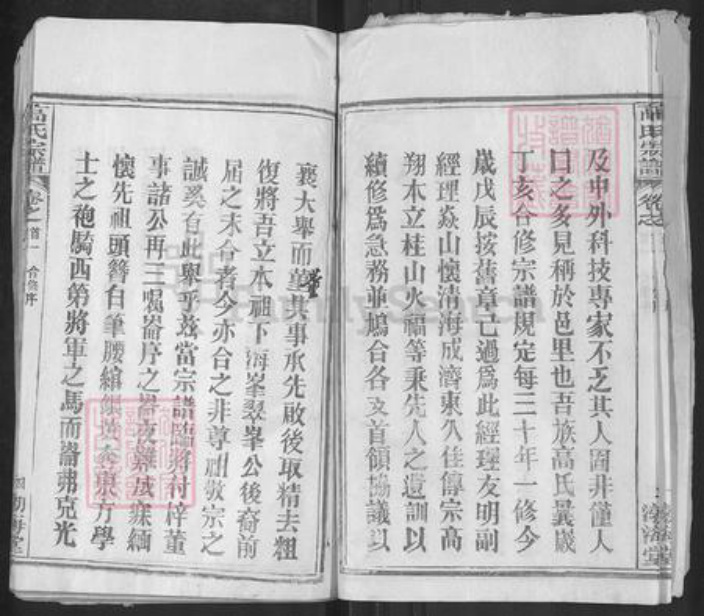 及中外科技專家不乏其人固非僅人
口之多見稱於邑里也吾族高氏曩歲
丁亥合修宗譜規定每三十年一修今
歲戊辰按舊章已過為此經理友明副
經理焱山懷清海成濟東久佳傳宗高
翔木立桂山火福等秉先人之遺訓以
續修為急務並鳩合各支首領協議以
襄大舉而董其事承先啟後取精去粗
復將吾立本祖下海峯翠峯公後裔前
屆之未合者今亦合之非尊祖敬宗之
誠奚有此舉乎兹當宗譜臨將付梓董
事諸公再三囑崙序之崙夜難成寐緬
懷先祖頭簪白筆腰綰銀 東方學
士之袍騎西第將軍之馬而崙弗克光
高氏宗譜
卷之首一
合修序
渤海堂
FamilySearch